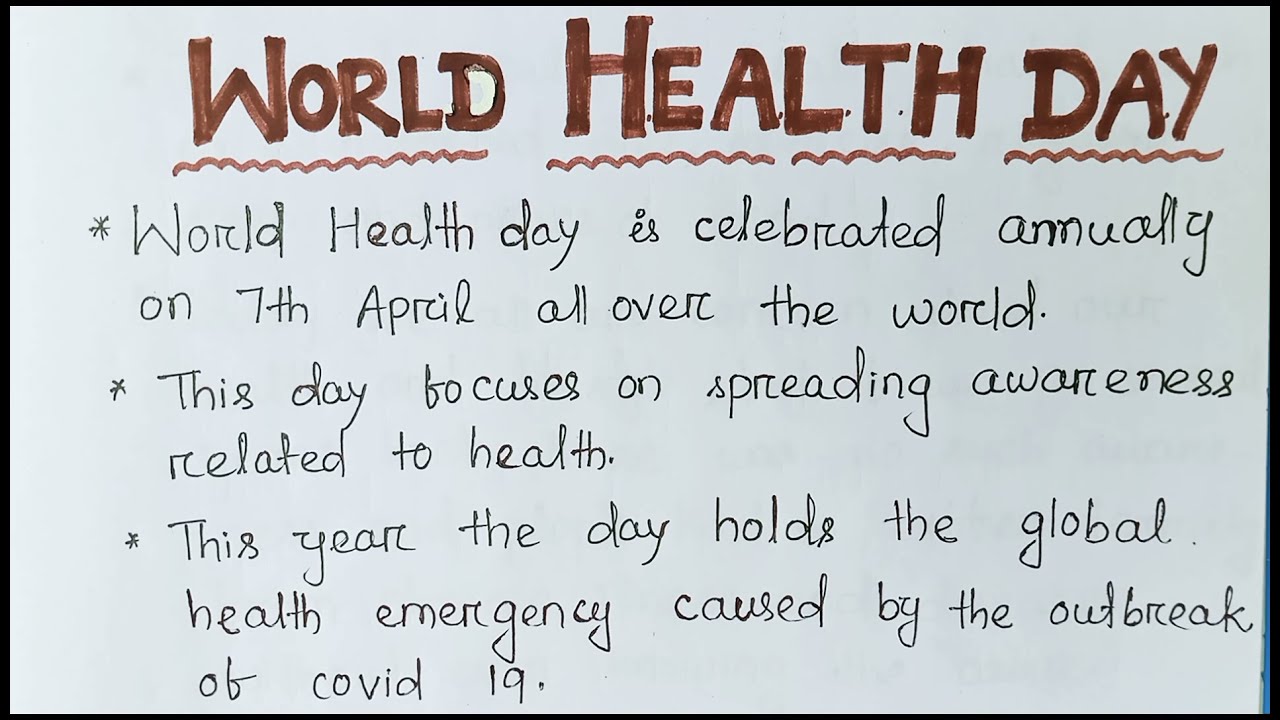 WORLD HEALTH DAY
* World Health day is celebrated annually
on 7th April all over the world.
* This day focuses on spreading awareness
related to health.
* This year the day holds the global
health emergency caused by the outbreak
of covid 19.